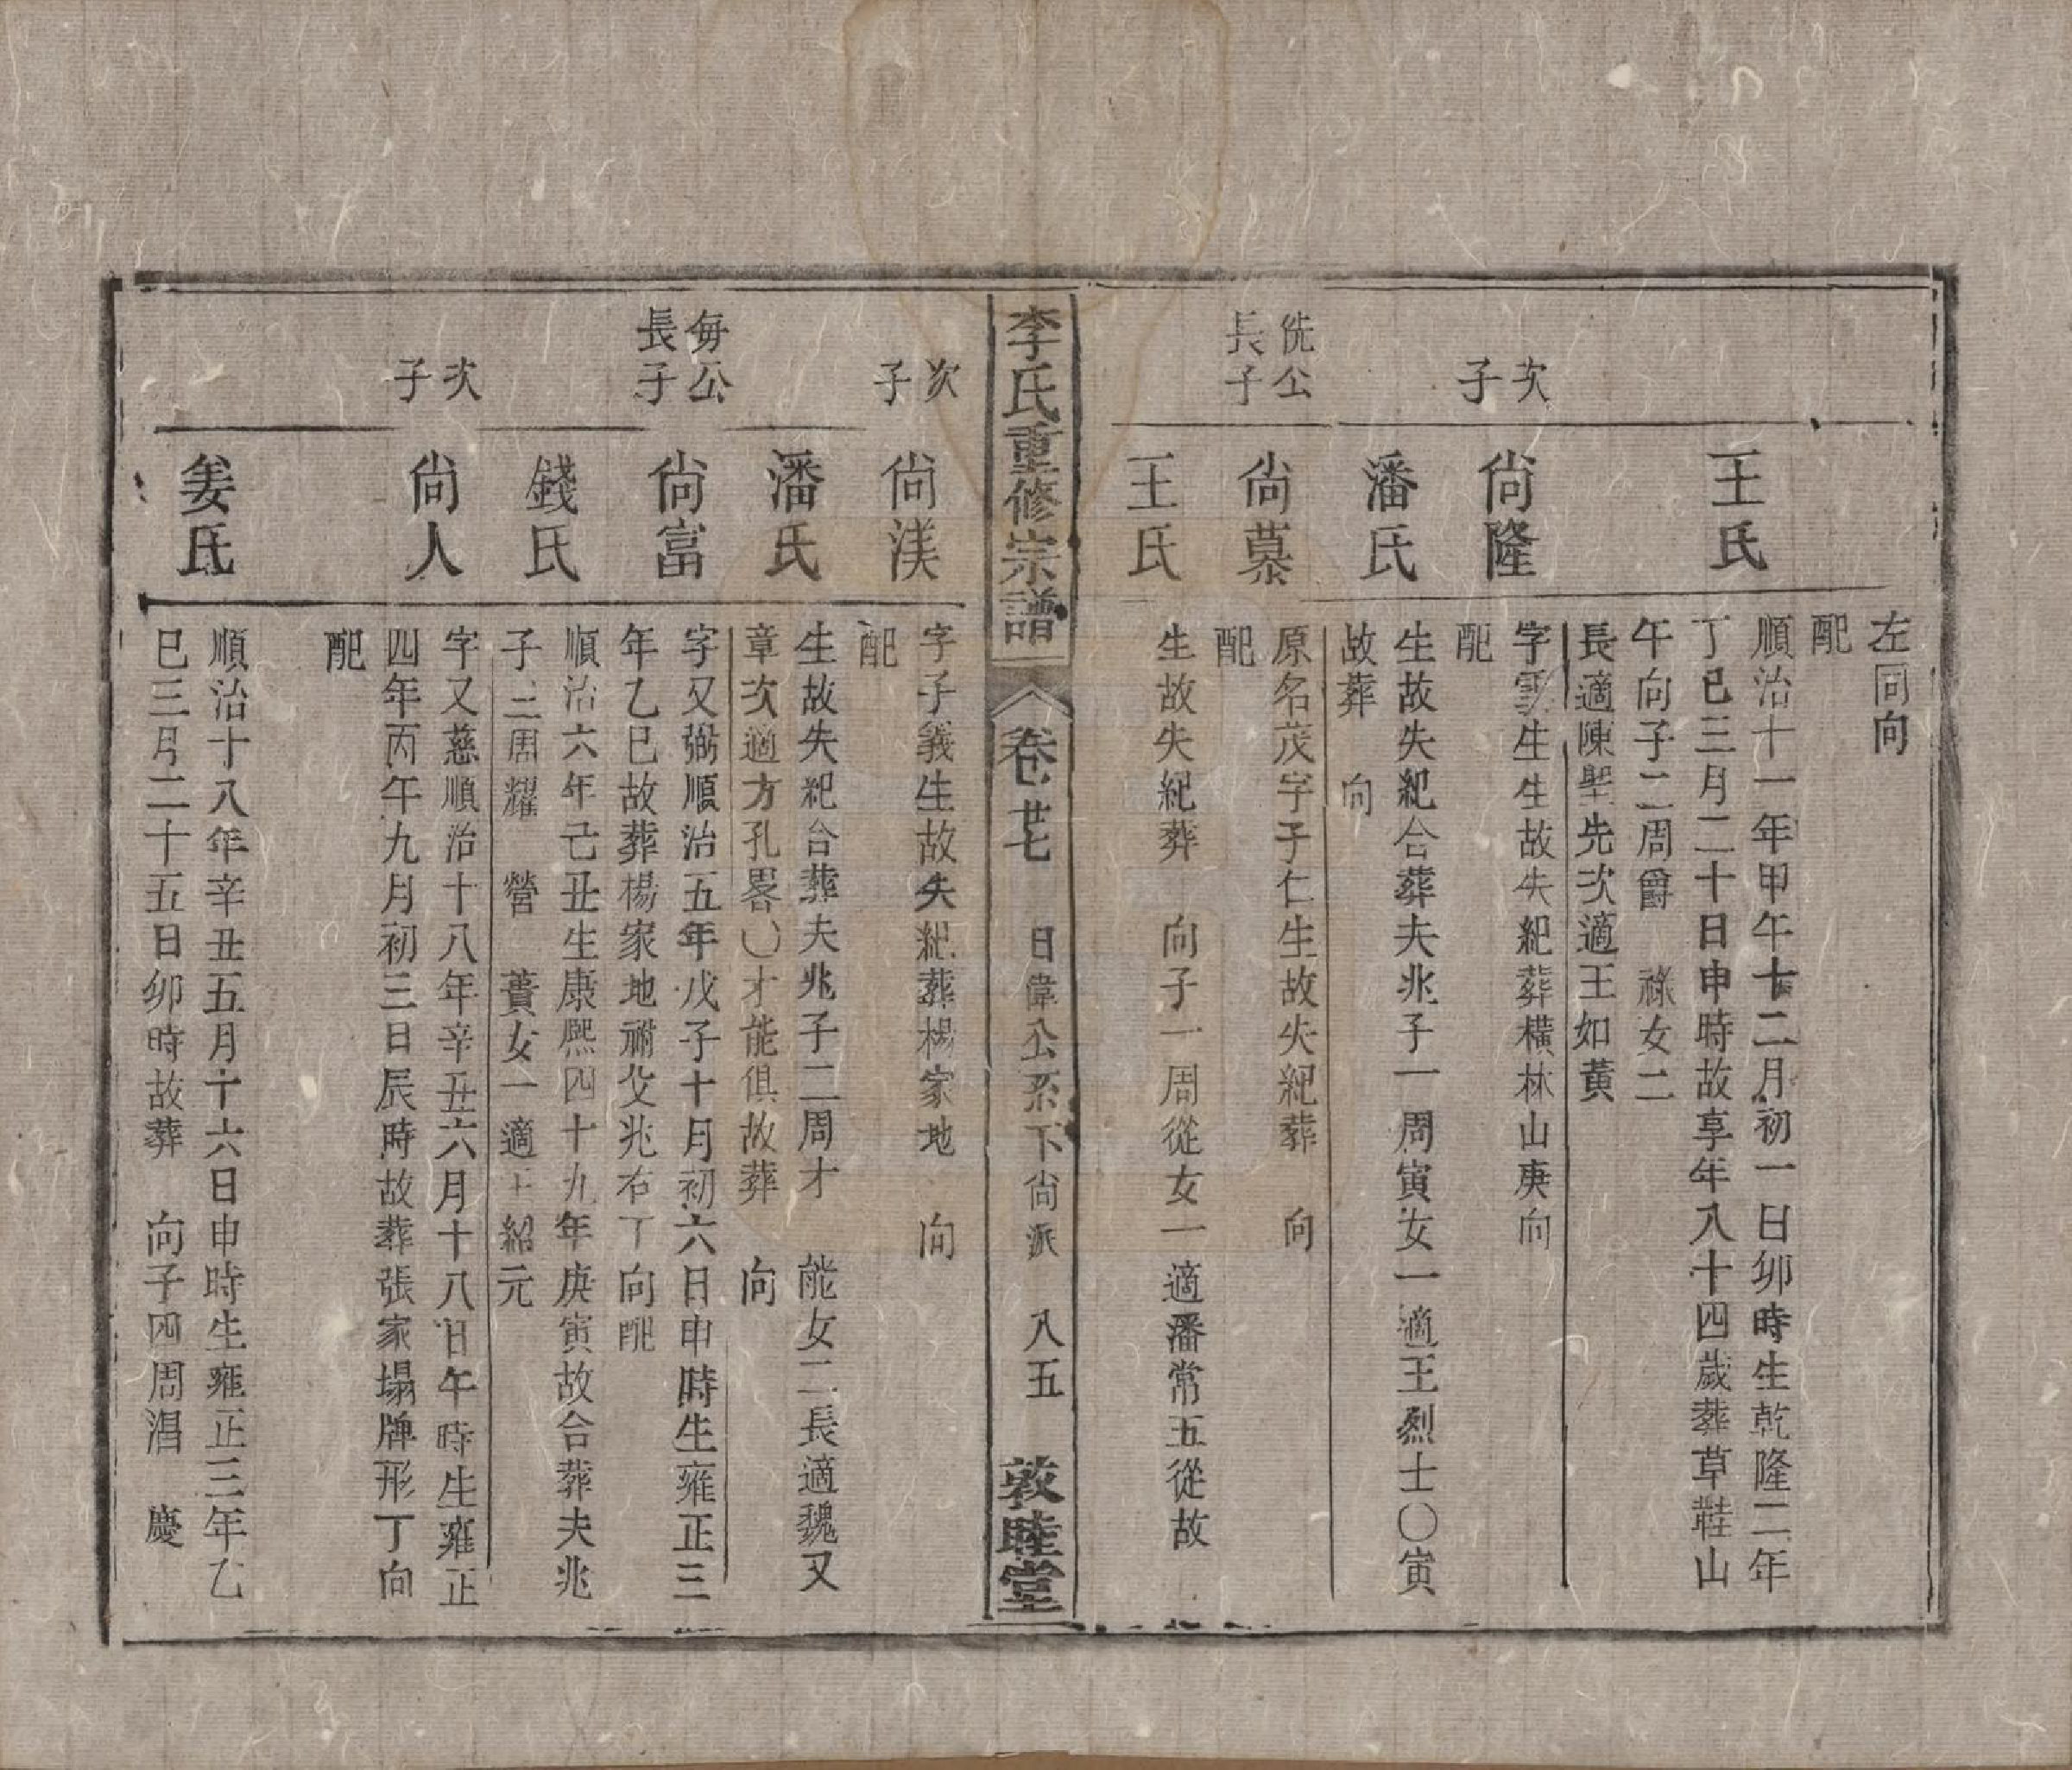 左同向
配
王氏
順治十一年甲午十二月初一日卯時生乾隆二年
丁巳三月二十日申時故享年八十四歲葬草鞋山
午向子二周爵 祿女二
長適陳堅先次適王如黃
次子
尚隆
字雲生生故失紀葬橫林山庚向
配
潘氏
生故失紀合葬夫兆子一周寅女一適王烈士〇寅
故葬 向
侁公長子
尚慕
原名茂字子仁生故失紀葬 向
配
王氏
生故失紀葬 向子一周從女一適潘常五從故
李氏重修宗譜
卷廿七 日偉公系下尚派 八五 敦睦堂
次子
尚渼
字子義生故失紀葬楊家地 向
配
潘氏
生故失紀合葬夫兆子二周才 能女二長適魏又
章次適方孔畧〇才能俱故葬 向
每公長子
尚富
字又弼順治五年戊子十月初六日申時生雍正三
年乙巳故葬楊家地祔父兆右丁向配
錢氏
順治六年己丑生康熙四十九年庚寅故合葬夫兆
子三周耀 營 蕢女一適王紹元
次子
尚人
字又慈順治十八年辛丑六月十八日午時生雍正
四年丙午九月初三日辰時故葬張家塌牌形丁向
配
姜氏
順治十八年辛丑五月十六日申時生雍正三年乙
巳三月二十五日卯時故葬 向子四周淐 慶